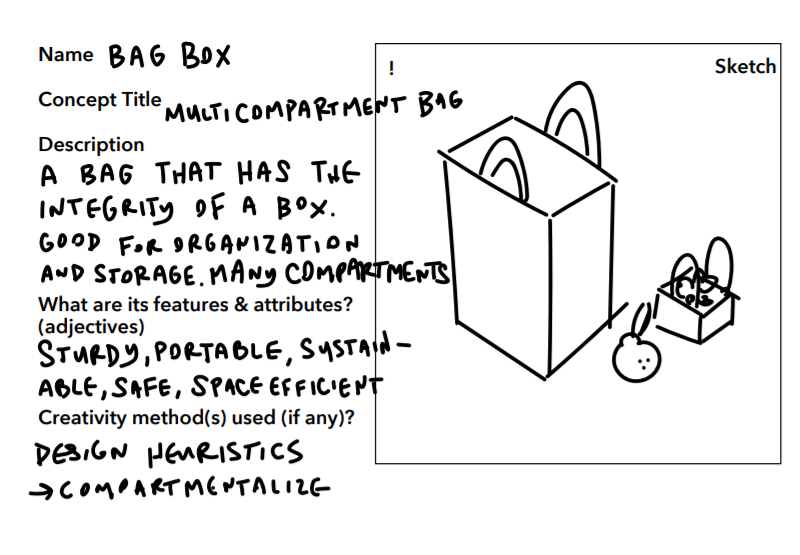 Name BAG BOX
! Sketch
Concept Title MULTICOMPARTMENT BAG
Description
A BAG THAT HAS THE
INTEGRITY OF A BOX.
GOOD FOR ORGANIZATION
AND STORAGE. MANY COMPARTMENTS
What are its features & attributes?
(adjectives)
STURDY, PORTABLE, SUSTAIN-
ABLE, SAFE, SPACE EFFICIENT
Creativity method(s) used (if any)?
DESIGN HEURISTICS
→ COMPARTMENTALIZE